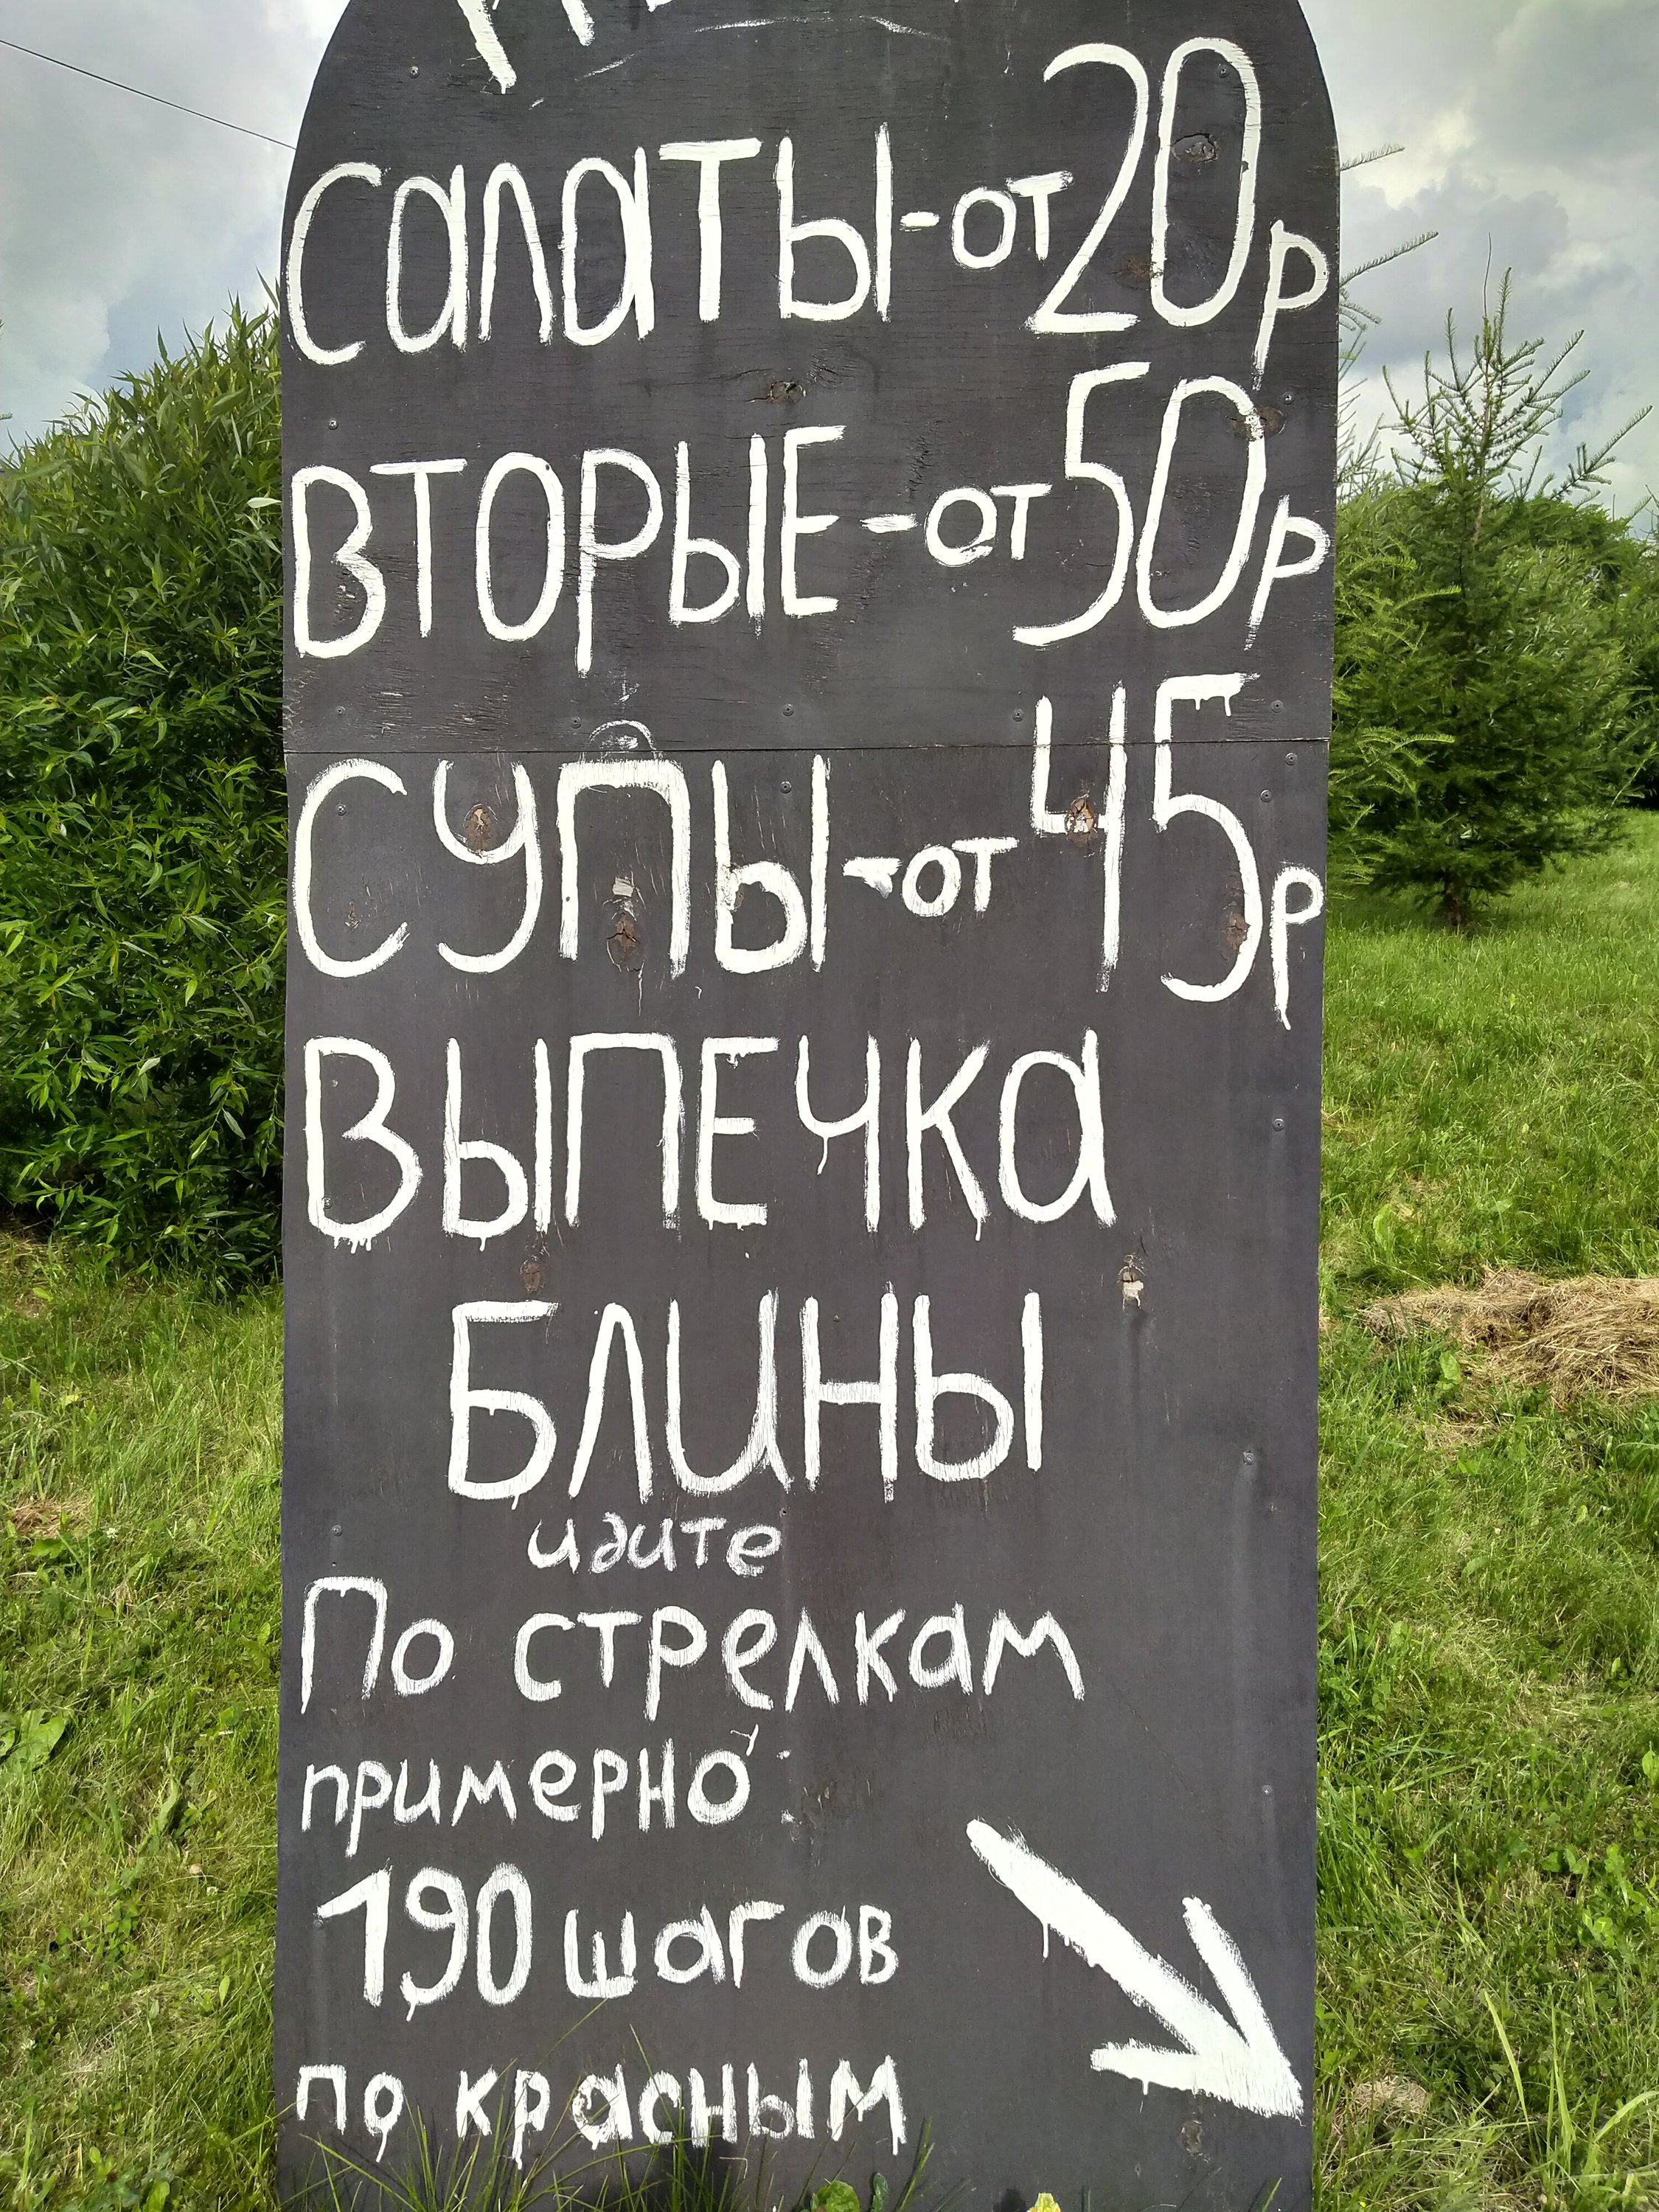 Салаты-от 20р
ВТОРЫЕ-от 50р
СУПЫ-от 45р
ВЫПЕЧКа
БЛИНЫ
идите
По стрелкам
примерно:
190 шагов
по красным